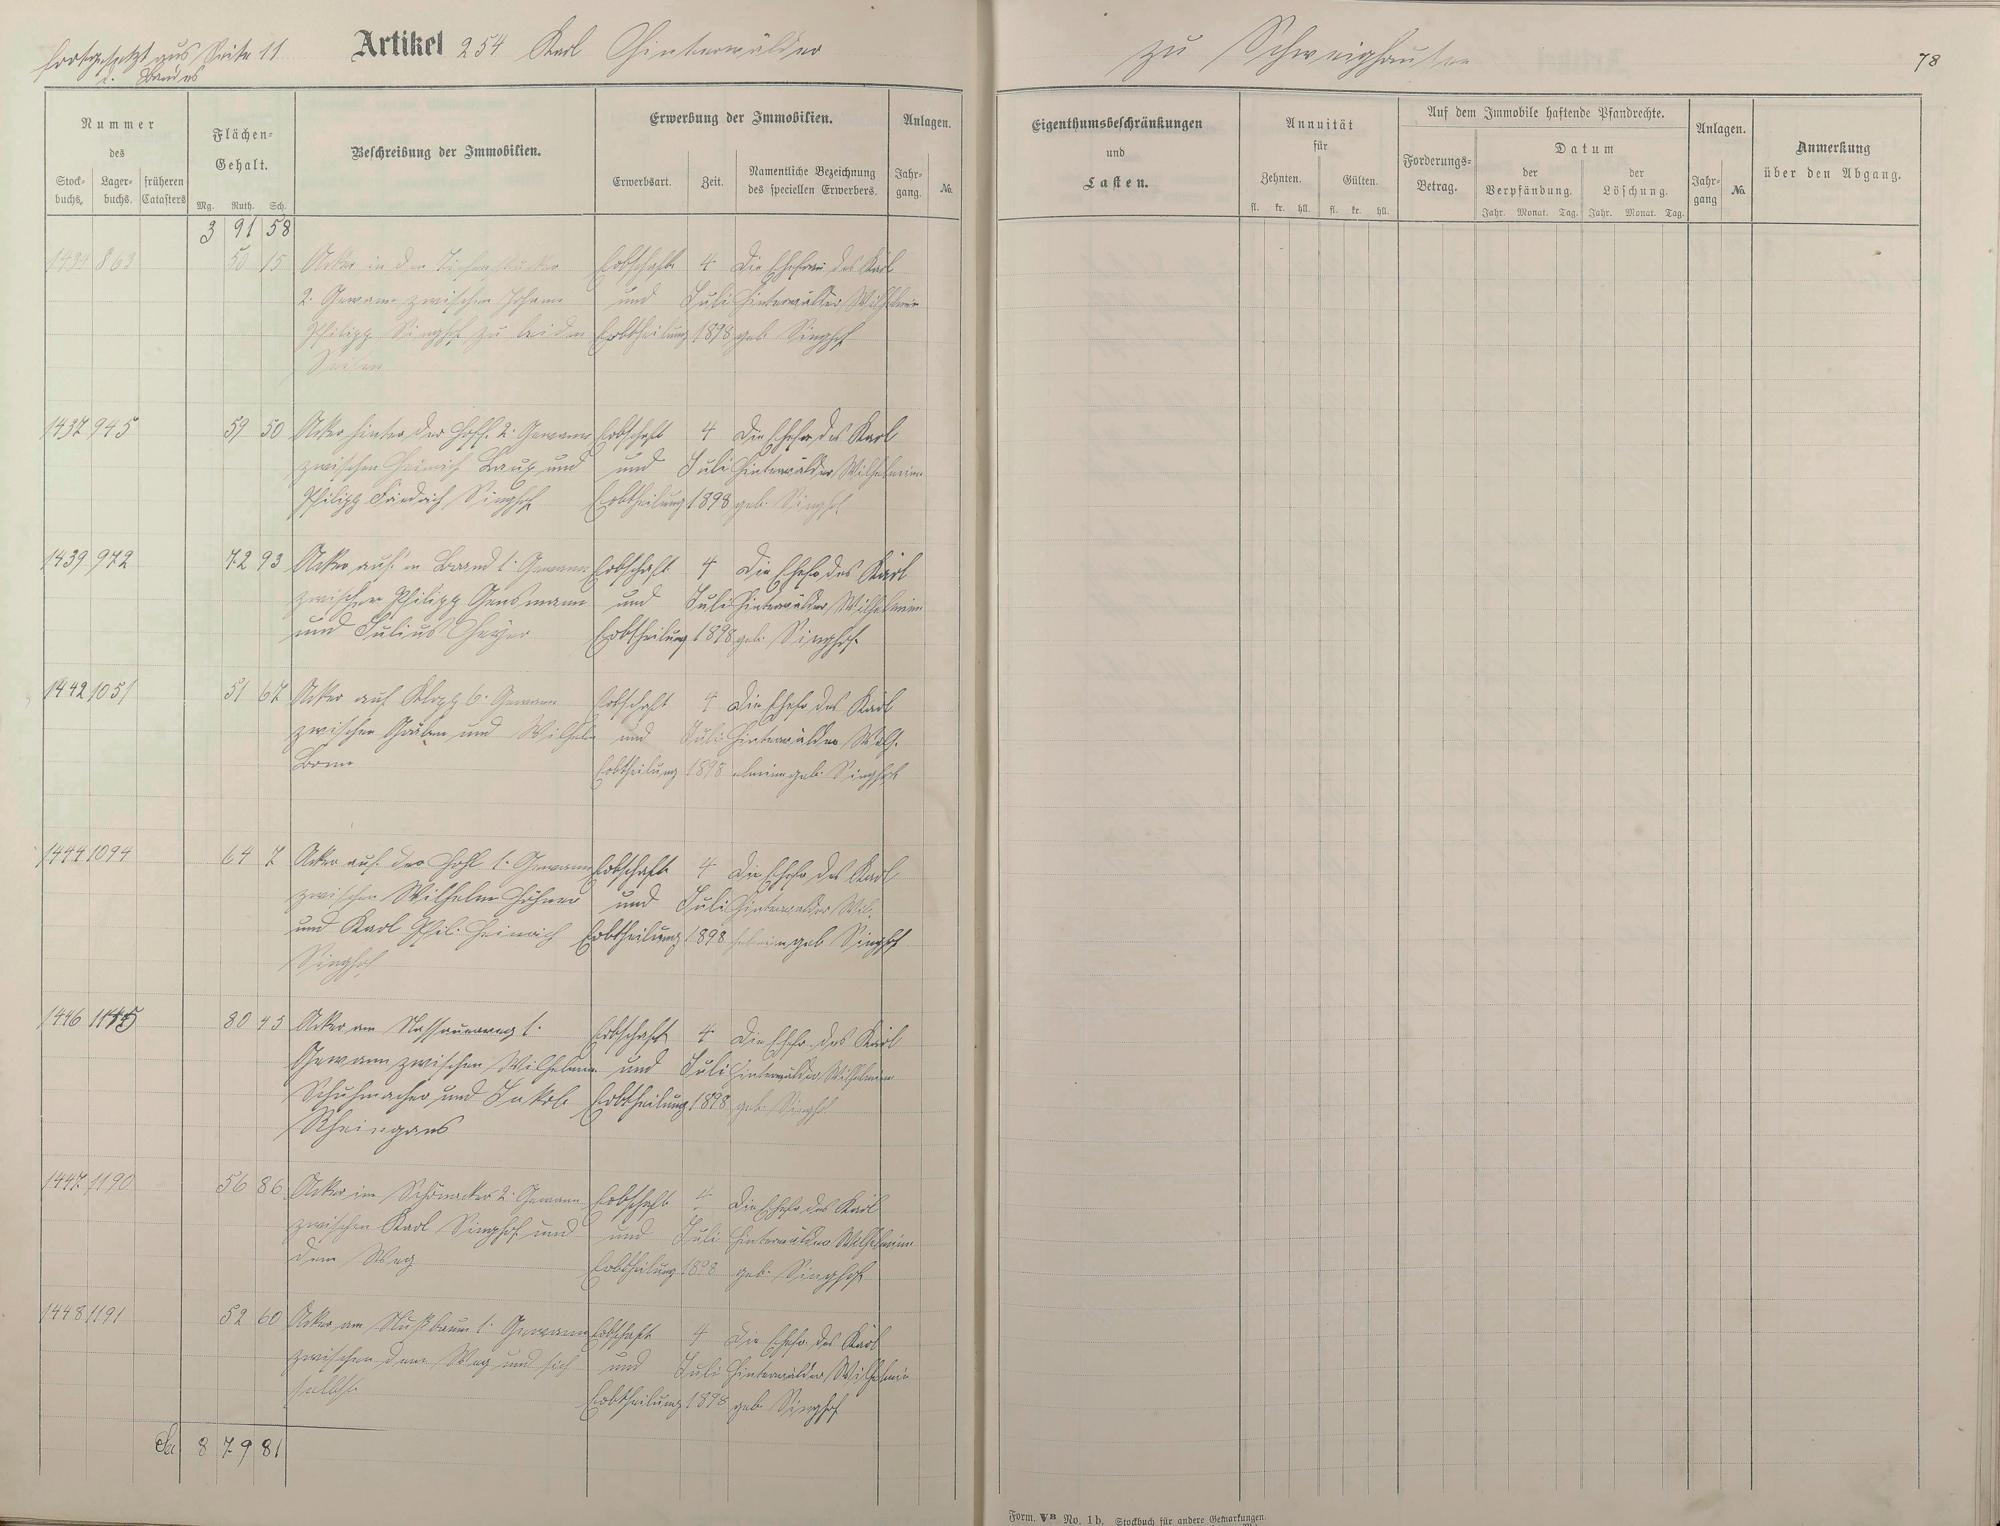 Fortgesetzt aus Seite 11
Bandes
Artikel 254 Karl Hinterwälder
zu Schweighausen
78
Nummer
des
Stock-buchs. Lager-buchs. früheren Catasters
Flächen-Gehalt.
Mg. Ruth. Sch.
Beschreibung der Immobilien.
Erwerbung der Immobilien.
Erwerbsart. Zeit. Namentliche Bezeichnung des speciellen Erwerbers.
Anlagen.
Jahr-gang. No.
Eigenthumsbeschränkungen
und
Lasten.
Annuität
für
Zehnten. Gülten.
fl. kr. hll. fl. kr. hll.
Auf dem Immobile haftende Pfandrechte.
Forderungs-Betrag.
Datum
der Verpfändung. der Löschung.
Jahr. Monat. Tag. Jahr. Monat. Tag.
Anlagen.
Jahr-gang No.
Anmerkung
über den Abgang.
3 91 58
1434 863 50 15 Acker in den Erbschaft 4 Die Ehefrau des Karl
2. Gewann zwischen Johann und Juli Hinterwälder Wilhelmine
Philipp Singhof zu beiden Erbtheilung 1898 geb. Singhof
Seiten
1437 945 59 50 Acker hinter der Hoff. 2. Gewann Erbschaft 4 Die Ehefr. des Karl
zwischen Heinrich Laux und und Juli Hinterwälder Wilhelmine
Philipp Friedrich Singhof Erbtheilung 1898 geb. Singhof
1439 972 72 93 Acker auf'm Brand 1. Gewann Erbschaft 4 Die Ehefr. des Karl
zwischen Philipp Gensmann und Juli Hinterwälder Wilhelmine
und Julius Heyer Erbtheilung 1898 geb. Singhof
1442 1051 51 67 Acker auf Klopp 6. Gewann Erbschaft 4 Die Ehefr. des Karl
zwischen Graben und Wilhelm und Juli Hinterwälder Wilh-
Born Erbtheilung 1898 elmine geb. Singhof
1444 1094 64 7 Acker auf der Hohl 1. Gewann Erbschaft 4 Die Ehefr. des Karl
zwischen Wilhelm Höhner und Juli Hinterwälder Wil-
und Karl Phil. Heinrich Erbtheilung 1898 helmine geb. Singhof
Singhof
1446 80 45 Acker am Nassauerweg 1. Erbschaft 4 Die Ehefr. des Karl
Gewann zwischen Wilhelm und Juli Hinterwälder Wilhelmine
Schuhmacher und Jakob Erbtheilung 1898 geb. Singhof
Rheingans
1447 1190 56 86 Acker im Schönacker 2. Gewann Erbschaft 4 Die Ehefr. des Karl
zwischen Karl Singhof und und Juli Hinterwälder Wilhelmine
dem Weg Erbtheilung 1898 geb. Singhof
1448 1191 52 60 Acker am Nußbaum 1. Gewann Erbschaft 4 Die Ehefr. des Karl
zwischen dem Weg und sich und Juli Hinterwälder Wilhelmine
selbst Erbtheilung 1898 geb. Singhof
Sa 8 79 81
Form. VB No. 1b. Stockbuch für andere Gemarkungen.